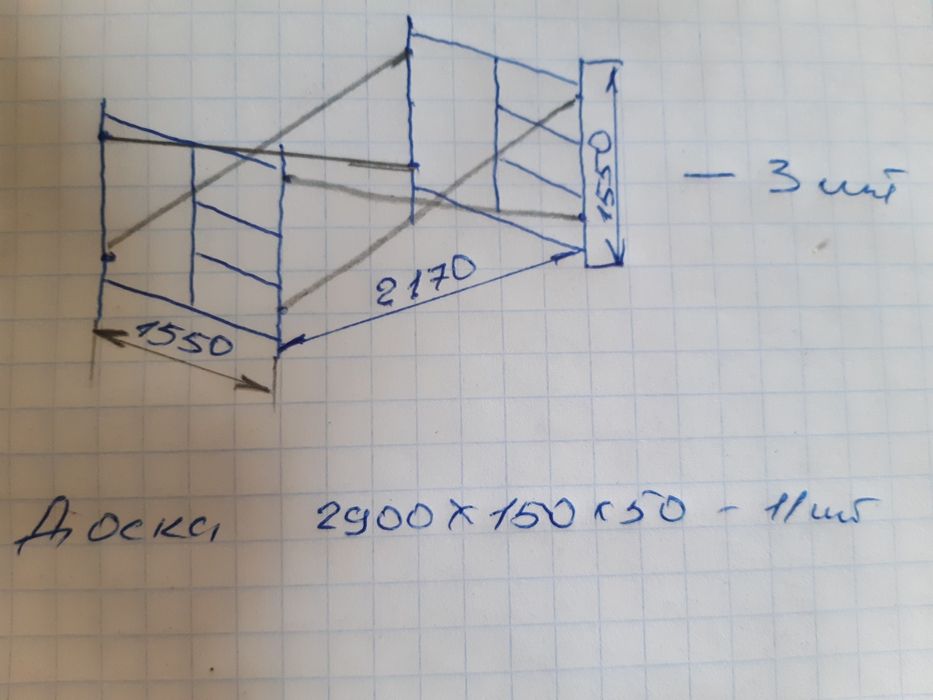 1550
- 3 шт
2170
1550
Доска 2900 x 150 x 50 - 11 шт